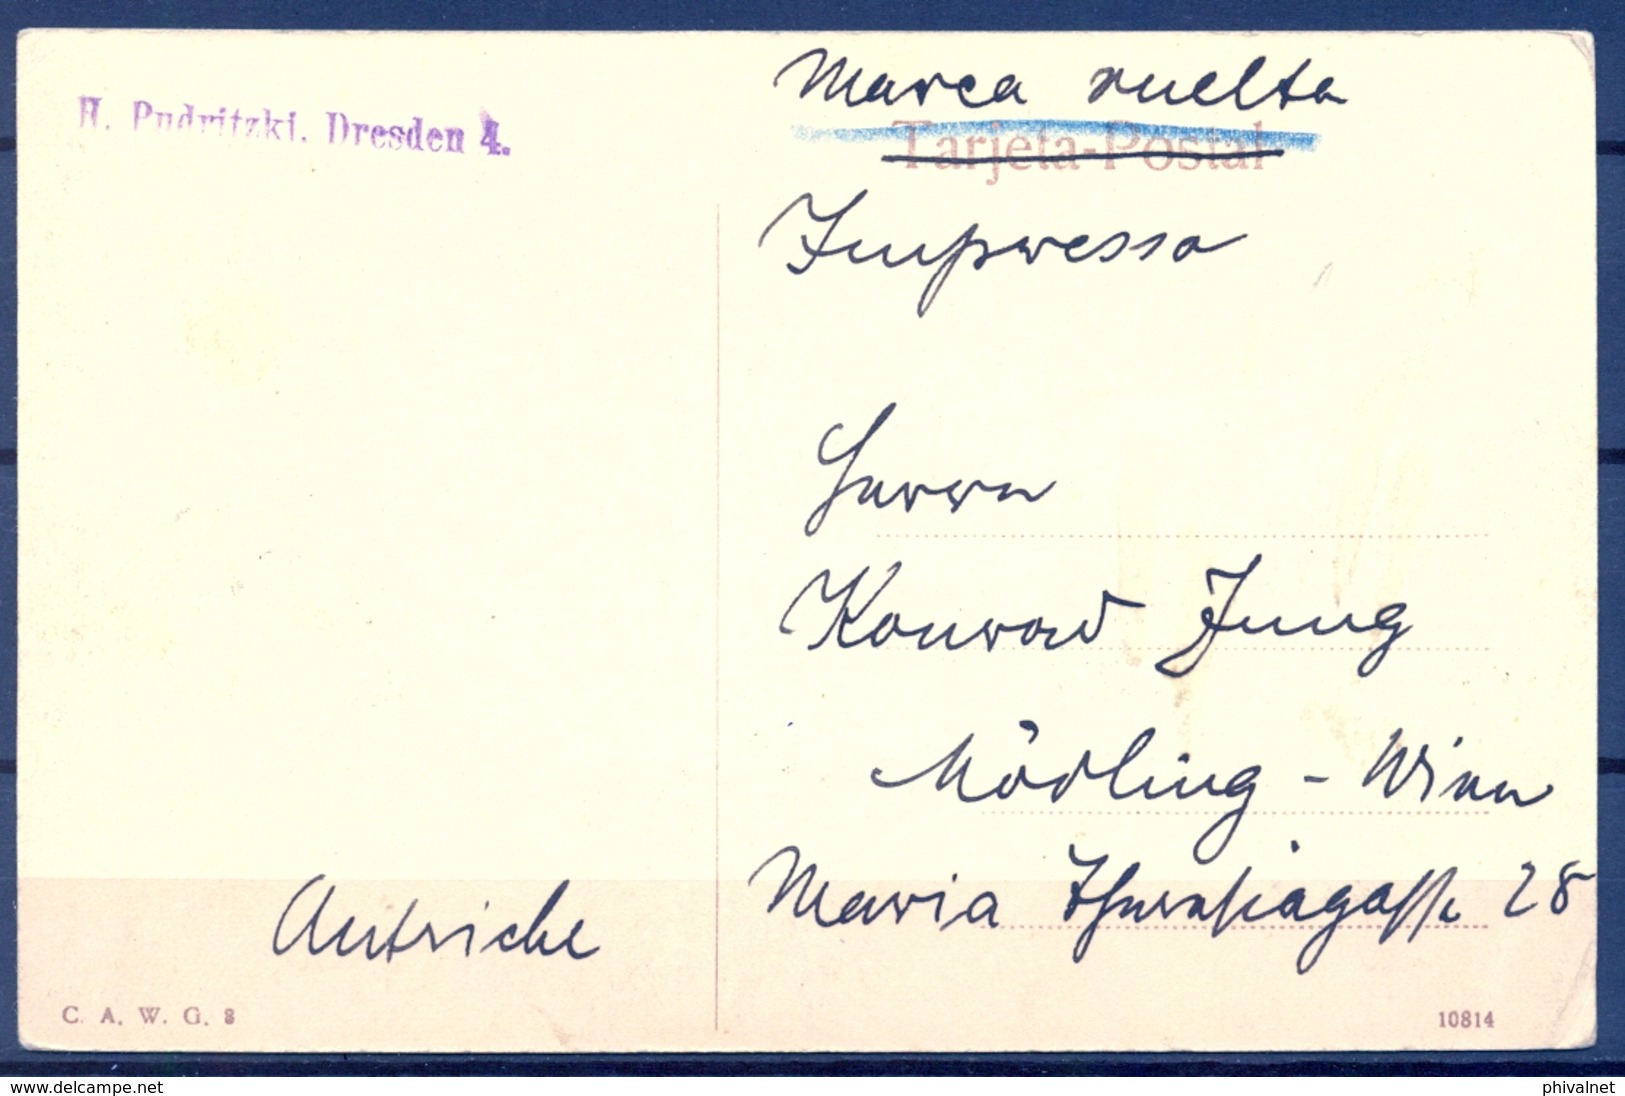 H. Pudritzki. Dresden 4.
Marca vuelta
Tarjeta-Postal
Impresso
Herrn
Konrad Jung
Mödling - Wien
Maria Theresiagasse 28
Autriche
C. A. W. G. 8
10814
delcampe.net
phivalnet